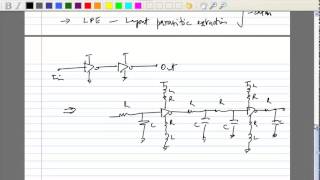 → LPE - Layout parasitic extraction
In
Out
⇒
L L
R R
R R R R
C C C C
R R
L L